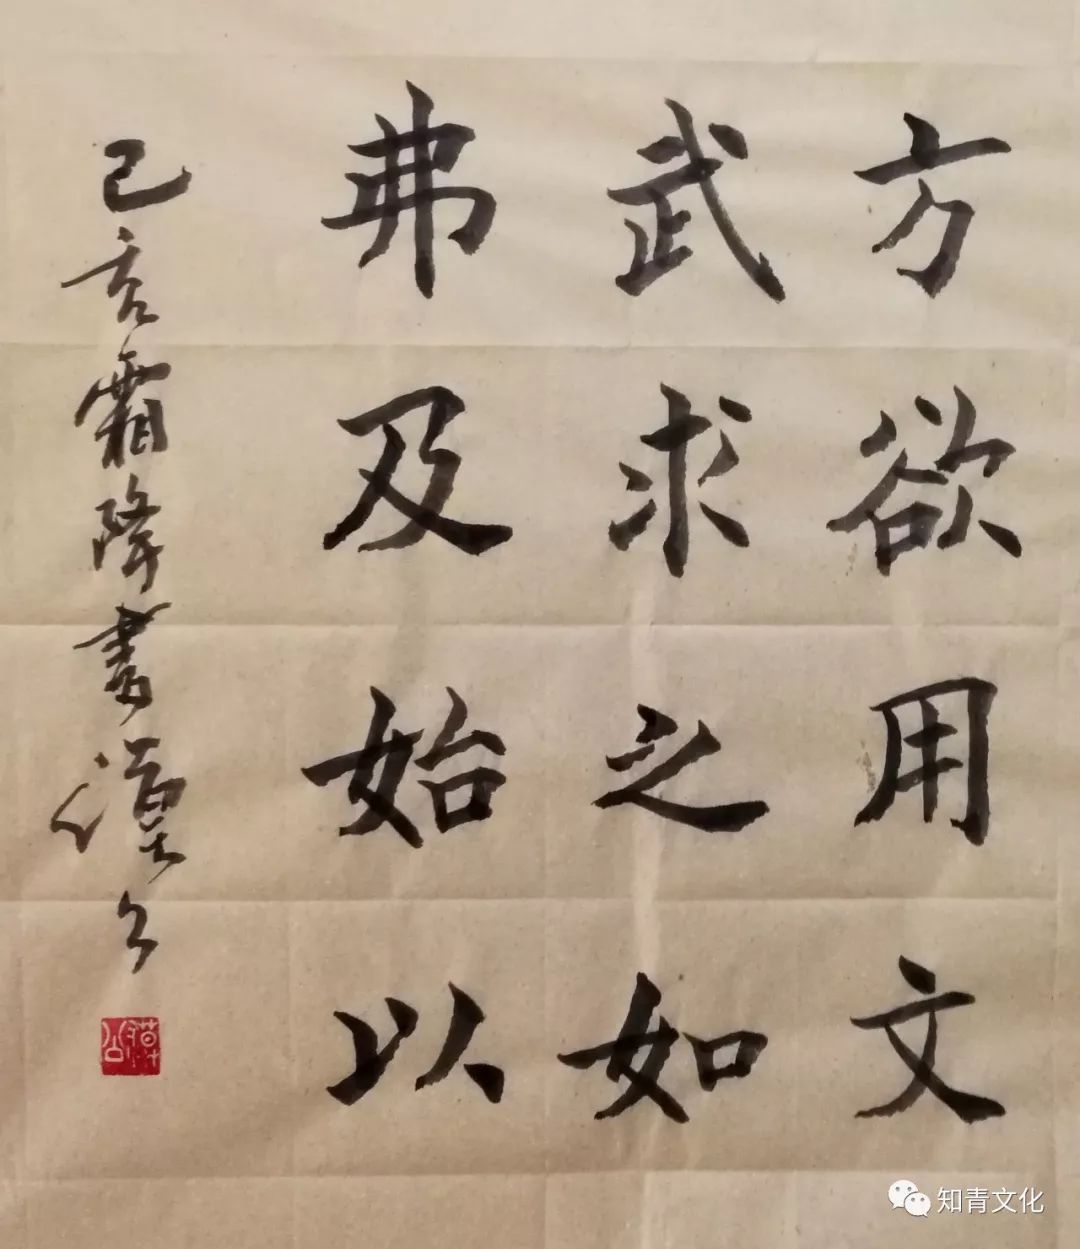 方欲用文
武求之如
弗及始以
己亥霜降書漠公
知青文化